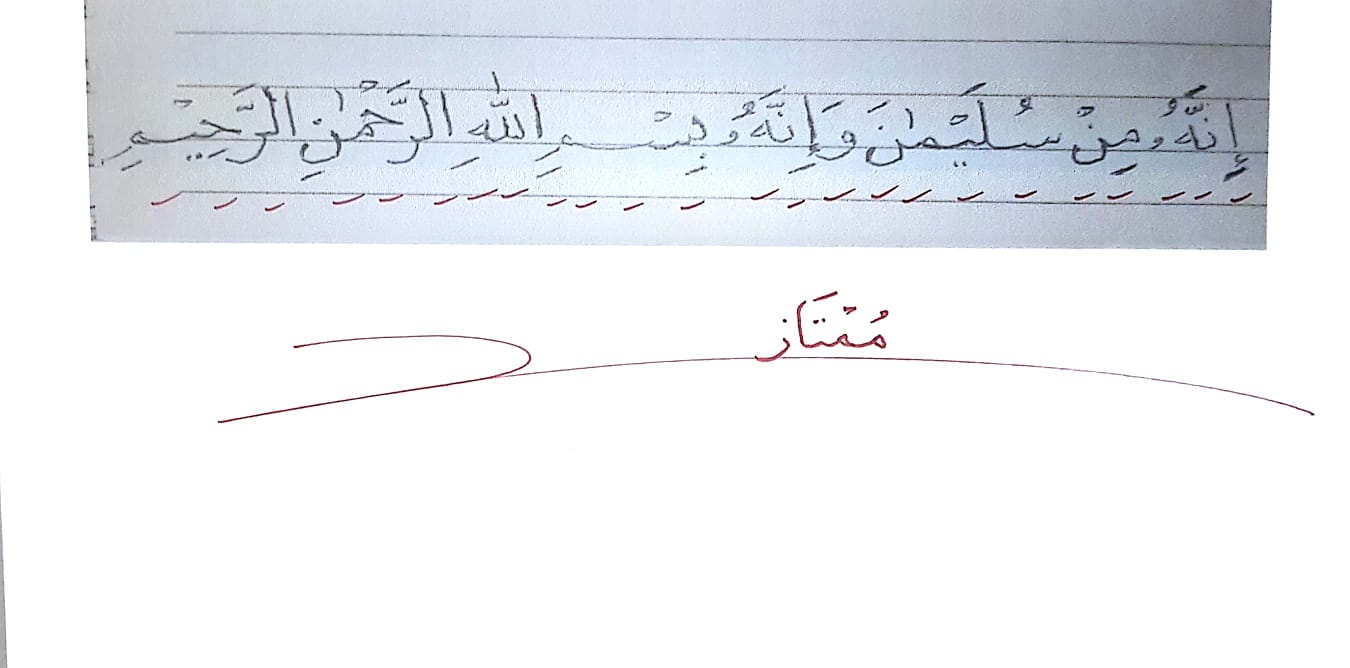 إِنَّهُۥ مِنْ سُلَيْمٰنَ وَإِنَّهُۥ بِسْمِ اللّٰهِ الرَّحْمٰنِ الرَّحِيْمِ
مُمْتَاز